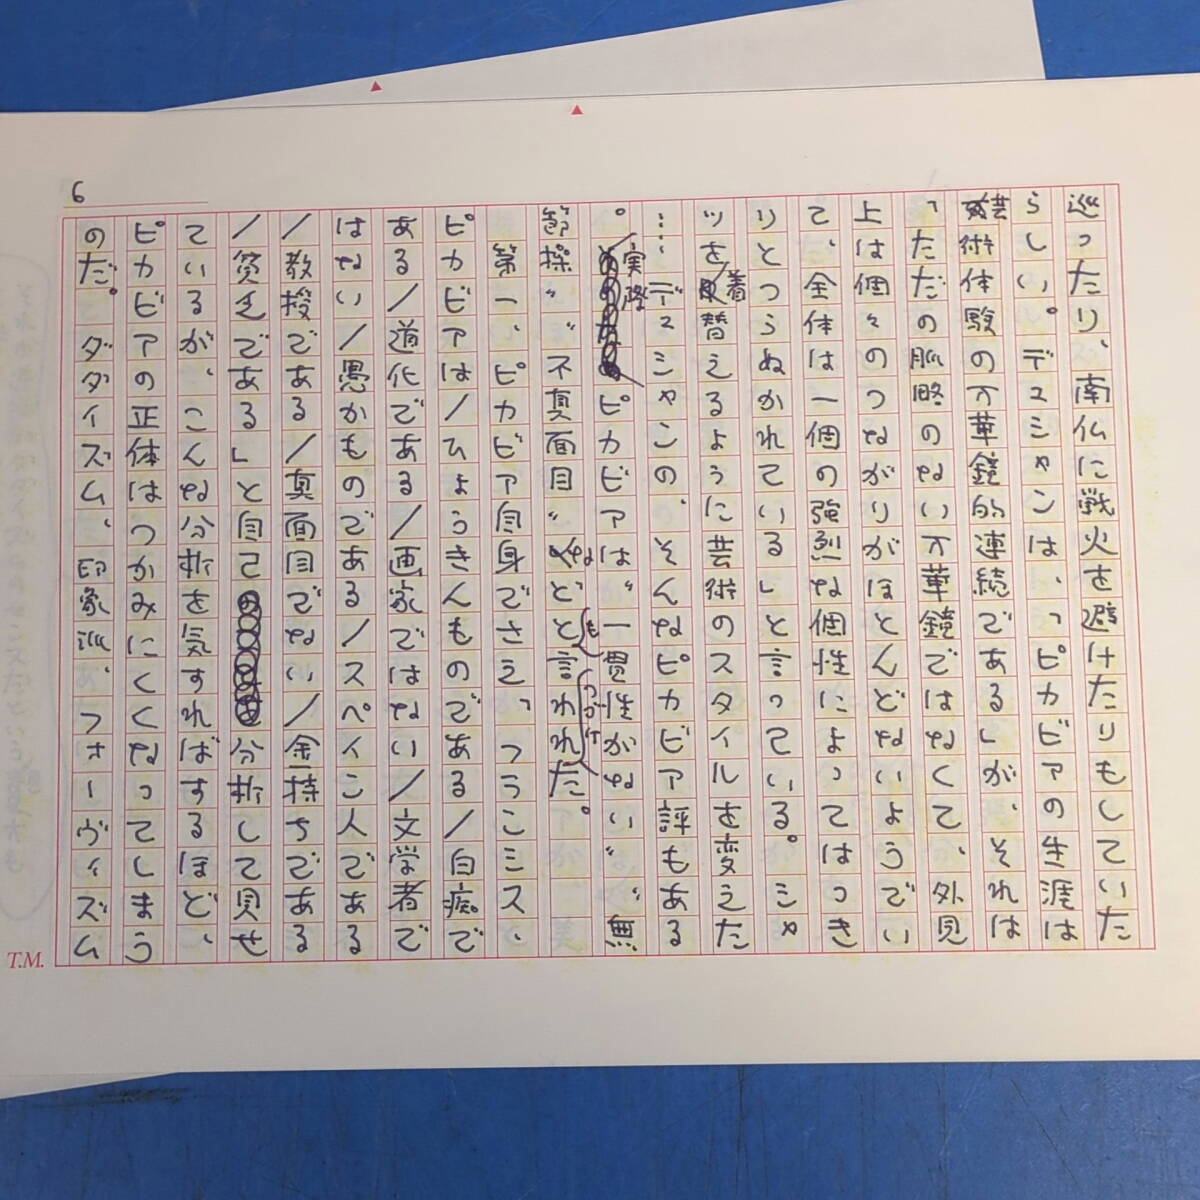 6
巡ったり、南仏に戦火を避けたりもしていた
らしい。デュシャンは、「ピカビアの生涯は
芸術体験の万華鏡的連続である」が、それは
「ただの脈略のない万華鏡ではなくて、外見
上は個々のつながりがほとんどないようでい
て、全体は一個の強烈な個性によってはっき
りとつらぬかれている」と言っている。シャ
ツを着替えるように芸術のスタイルを変えた
…、デュシャンの、そんなピカビア評もある
。実際ピカビアは〝一貫性がない〟〝無
節操〟〝不真面目〟などとも言われつづけた。
第一、ピカビア自身でさえ、「うこミス、
ピカビアは/ひょうきんものである/白痴で
ある/道化である/画家ではない/文学者で
はない/愚かものである/スペイン人である
/教授である/真面目でない/金持ちである
/貧乏である」と自己分析して見せ
ているが、こんな分析を気すればするほど、
ピカビアの正体はつかみにくくなってしまう
のだ。ダダイズム、印象派、フォーヴィズム
T.M.